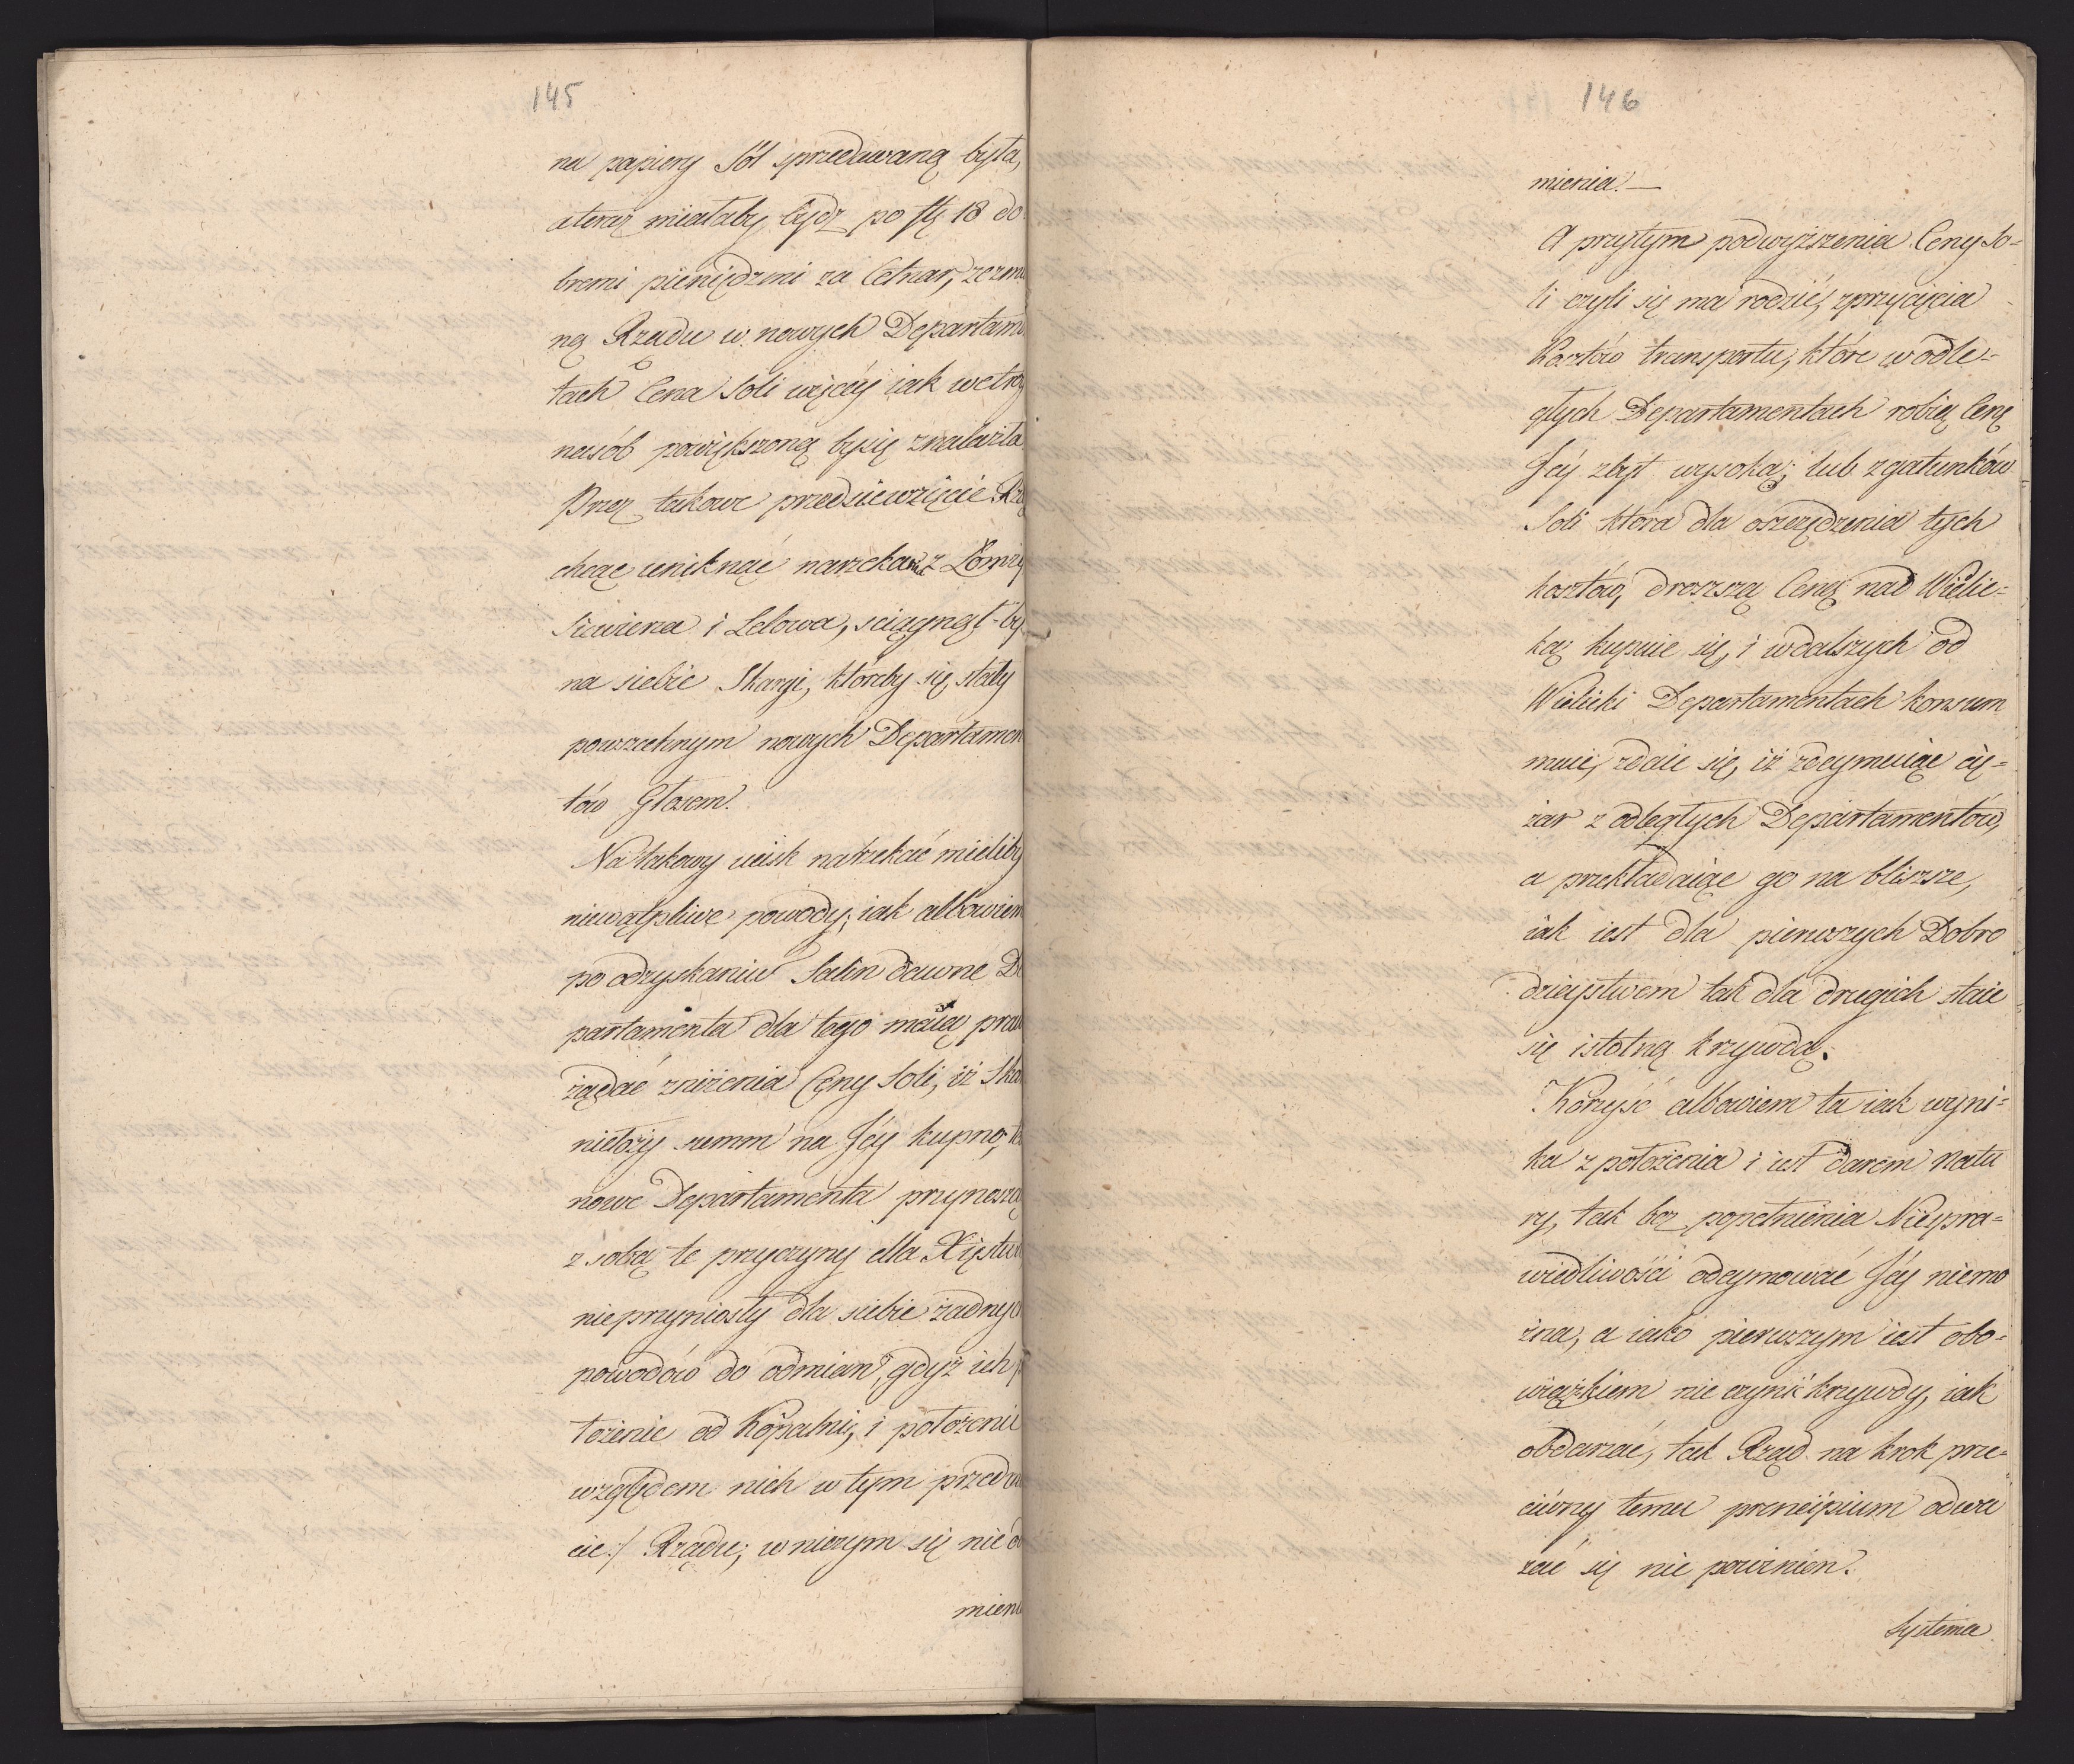 145
na papiery Sól sprzedawaną była,
a teraz miałaby bydź po fł 18 do
bremi pieniędzmi za Cetnar, ze zmia
ną Rządu w nowych Departamen
tach Cena Soli więcey iak wetroy
nasób powiększoną by się znalazła.
Przez takowe przedsięwzięcie Rzą
chcąc uniknąć narzekania z Łomży
Siewierza i Lelowa, sciągnął-by
na siebie Skargi, któreby się stały
powszechnym nowych Departamen
tów Głosem.
Na takowy ucisk narzekać mieliby
niewątpliwe powody; iak albowiem
po odzyskaniu Salin dawne De
partamenta dla tego maią praw
żądać zniżenia Ceny Soli, iż Ska
nie łoży summ na Jéy kupno,
nowe Departamenta przynosząc
z sobą te przyczyny dla Xięstwa
nieprzyniosły dla siebie żadnych
powodów do odmian, gdyż ich p
łożenie od Kopalni, i położenie
względem nich w tym przedmio
cie:/ Rządu; w niczym się nie od
mieni
146
mienia. —
A przytym podwyższenia Ceny So=
li czyli się ma rodzić, z przyięcia
Kosztów transportu, które w odle=
głych Departamentach robią Cenę
Jéy zbyt wysoką; lub z gatunków
Soli która dla oszczędzenia tych
kosztów, droższą Ceną nad Wielic=
ką kupuie się, i w dalszych od
Wieliczki Departamentach konsum
muie, zdaie się, iż zdeymuiąc cię=
żar z odległych Departamentów,
a przekładaiąc go na bliższe,
iak iest dla pierwszych Dobro
dzieystwem tak dla drugich staie
się istotną krzywdą.
Korzyść albowiem ta iak wyni=
ka z położenia i iest darem Natu
ry, tak bez popełnienia Niespra=
wiedliwości odeymować Jéy niemo
żna, a iako pierwszym iest obo=
wiązkiem nie czynić krzywdy, iak
obdarzać, tak Rząd na krok prze=
ciwny temu prencipium odwa
żać się nie powinien.
Systema